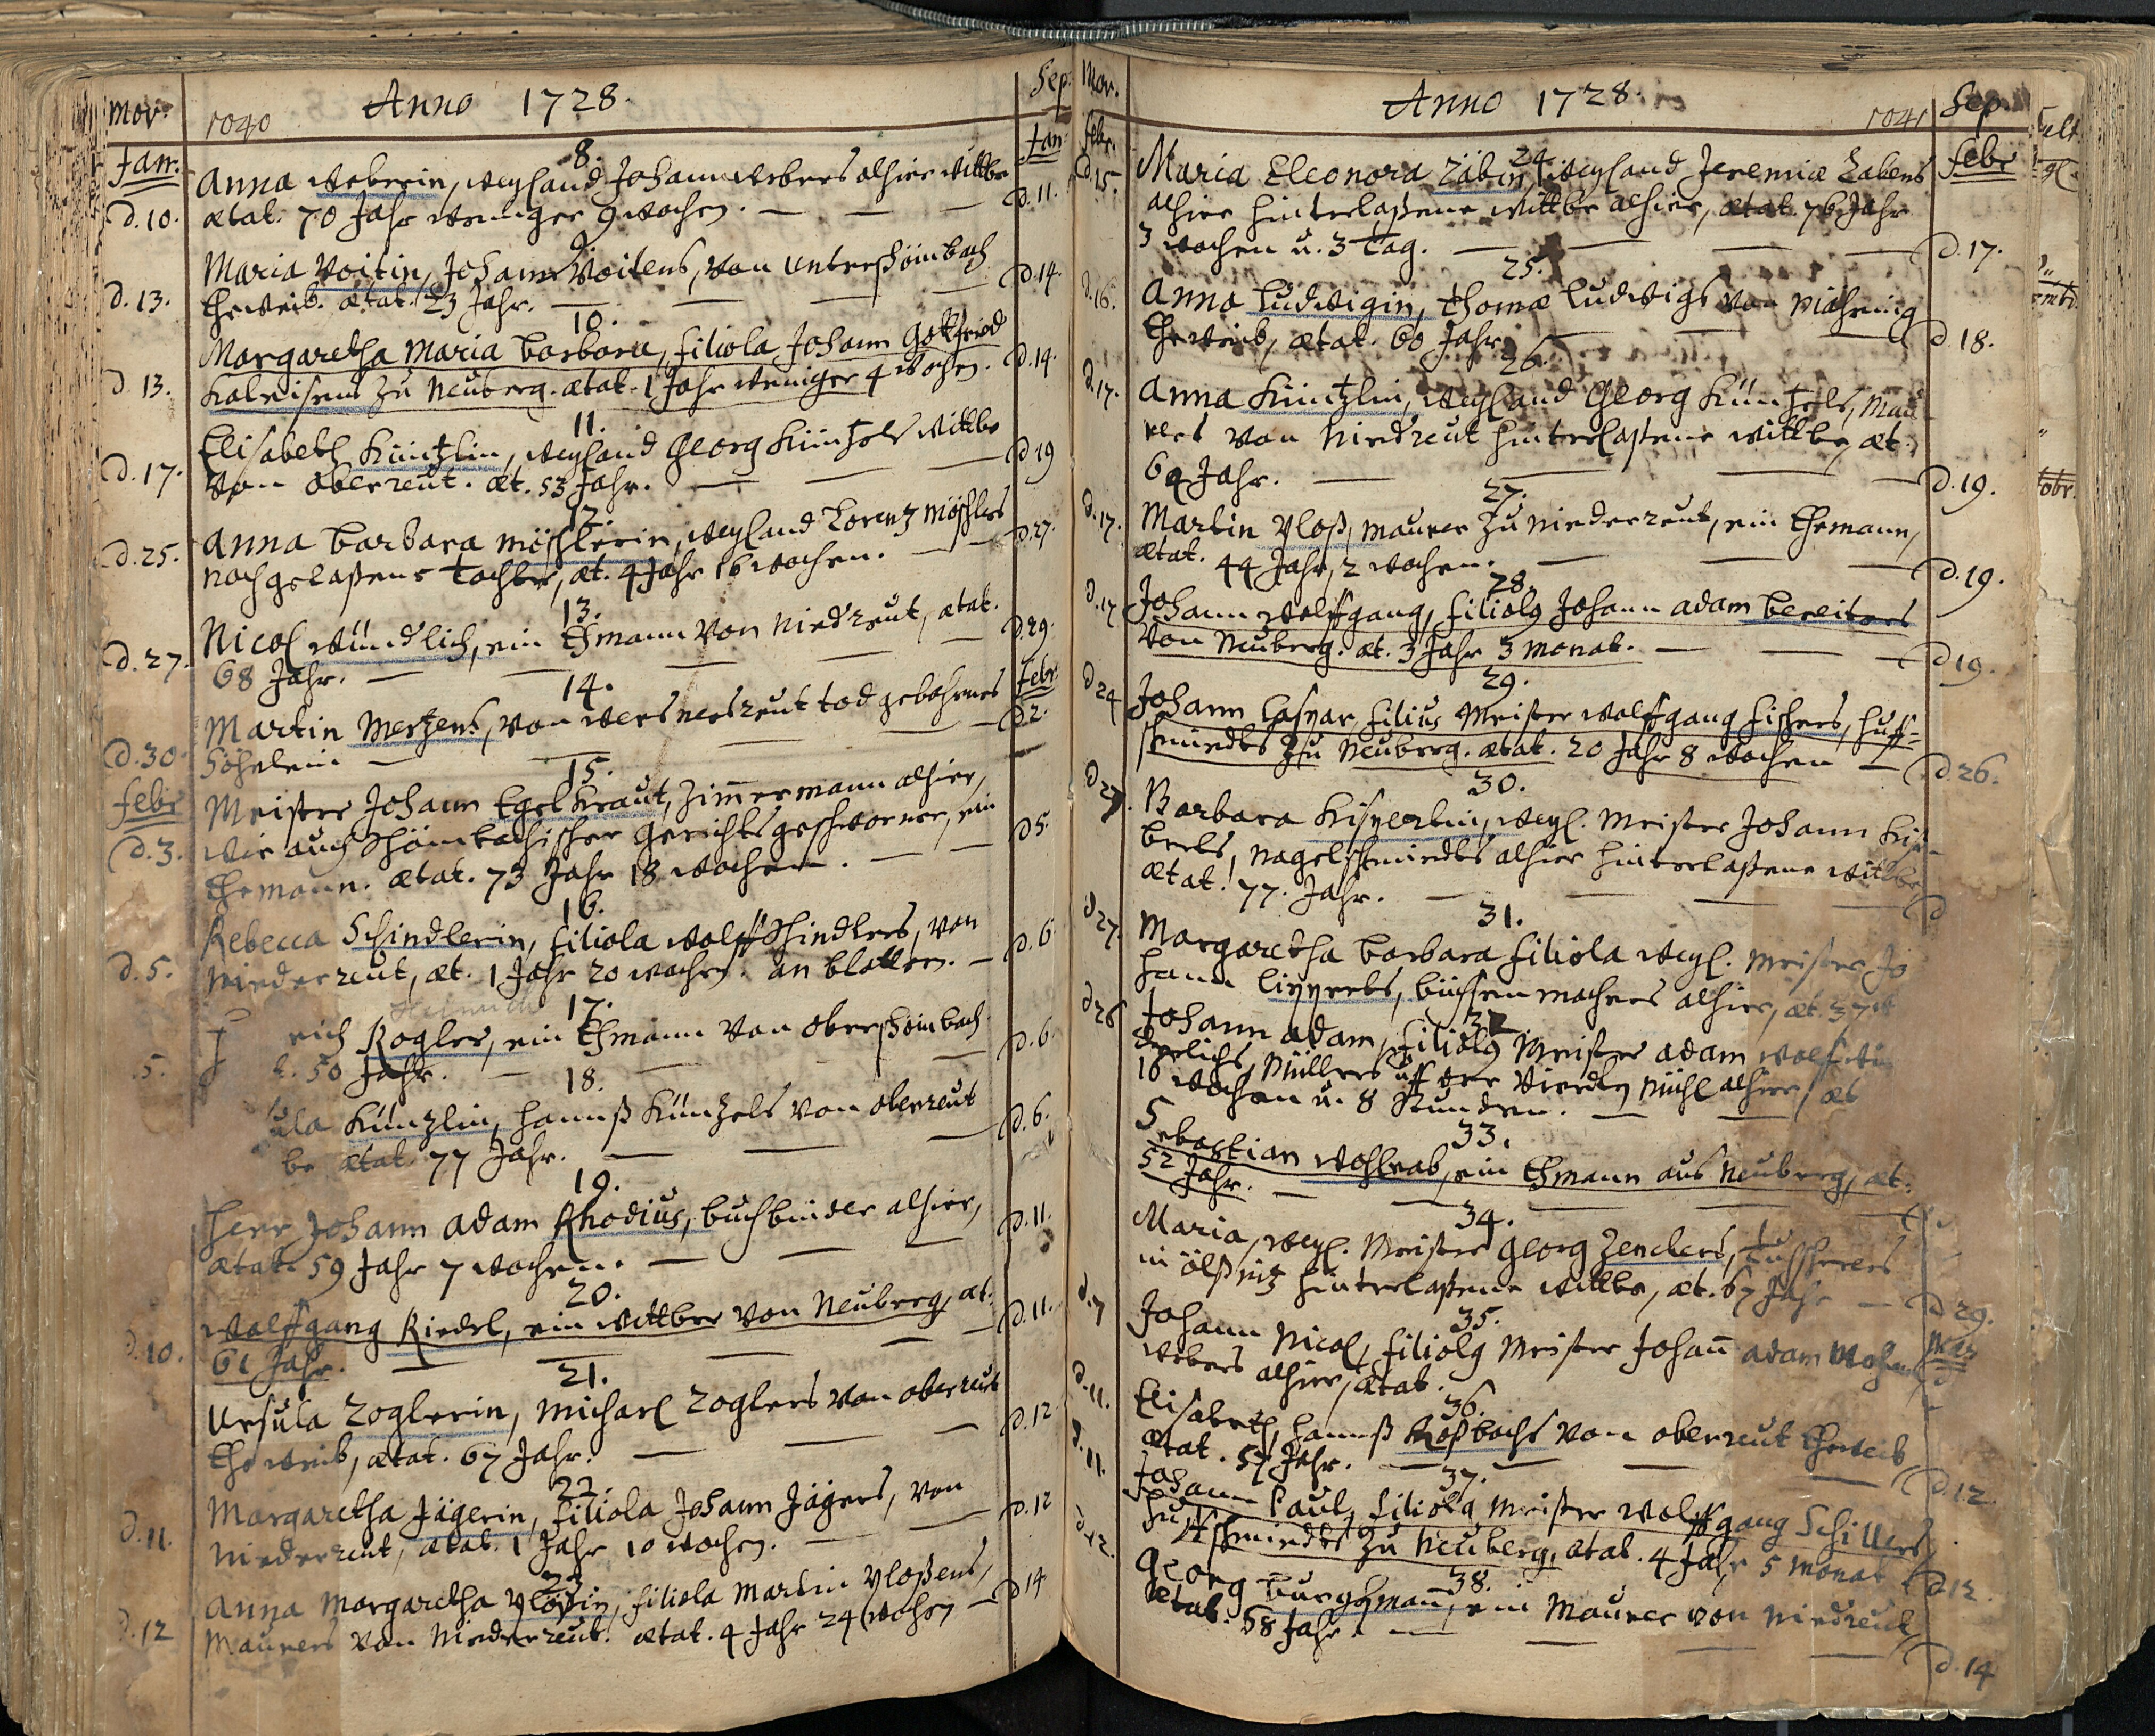 Mor.
1040
Anno 1728.
Sep.
Jan.
Jan.
8.
Anna Weberin, weyland Johann Webers alhier Wittbe
d. 10.
ætat. 70 Jahr weniger 9 Wochen.
d. 11.
9.
Maria Voitin, Johann Voitens, von Unterschömbach
d. 13.
Eheweib. ætat. 23 Jahr.
d. 14.
10.
Margaretha Maria Barbara, filiola Johann Gottfried
d. 13.
Kaleisens zu Neuberg. ætat. 1 Jahr weniger 4 Wochen.
d. 14.
11.
Elisabeth Küntzlin, weyland Georg Küntzels Wittbe
d. 17.
von Oberreut. æt. 53 Jahr.
d 19
12.
Anna Barbara Möschlerin, weyland Lorentz Möschlers
d. 25.
nachgelaßene Tochter, æt. 4 Jahr 16 Wochen.
d. 27.
13.
Nicol Wündlich, ein Ehmann von Niedreut, ætat.
d. 27.
68 Jahr.
d. 29.
14.
Febr.
Martin Mertzens, von Wernersreut tod gebohrnes
d. 30.
Söhnlein
d. 2.
15.
Febr
Meister Johann Egelkraut, Zimmermann alhier,
d. 3.
wie auch Schömbachischer Gerichtsgeschworner, ein
d 5.
Ehemann. ætat. 73 Jahr 18 Wochen.
16.
Rebecca Schindlerin, filiola Wolff Schindlers, von
d. 5.
Niederreut, æt. 1 Jahr 20 Wochen. an Blattern.
d. 6
17.
rich Rogler, ein Ehmann von Oberschömbach
5.
t. 50 Jahr.
d. 6.
18.
ula Küntzlin, Hannß Küntzels von Oberreut
be ætat. 77 Jahr.
d. 6.
19.
Herr Johann Adam Rhodius, Buchbinder alhier,
ætat. 59 Jahr 7 Wochen.
d. 11.
20.
Wolffgang Riedel, ein Wittber von Neuberg, æt.
d. 10.
61 Jahr.
d. 11.
21.
Ursula Zoglerin, Michael Zoglers von Oberreut
Eheweib, ætat. 67 Jahr.
d. 12
22.
Margaretha Jägerin, filiola Johann Jägers, von
d. 11.
Niederreut, ætat. 1 Jahr 10 Wochen.
d. 12
23
Anna Margaretha Ploßin, filiola Martin Ploßens,
d. 12
Maurers von Niederreut. ætat. 4 Jahr 24 Wochen
d 14
Mor.
Anno 1728.
1041
Sep.
Febr.
Febr
24
d 15.
Maria Eleonora Zäbin, weyland Jeremiæ Zabens
alhier hinterlaßene Wittbe alhier, ætat. 76 Jahr
3 Wochen u. 3 Tag.
d. 17.
25.
d. 16.
Anna Ludwigin, Thomæ Ludwigs von Mähring
Eheweib, ætat. 60 Jahr
d 18.
26.
d. 17.
Anna Küntzlin, weyland Georg Küntzels, Mau
rers von Niedreut hinterlaßene Wittbe, æt.
69 Jahr.
d. 19.
27.
d. 17.
Martin Ploß, Maurer zu Niederreut, ein Ehemann,
ætat. 44 Jahr, 2 Wochen.
d. 19.
28.
d. 17
Johann Wolffgang, filiolg Johann Adam Bereiters
von Neuberg. æt. 3 Jahr 3 Monat.
d 19.
29.
d 24
Johann Caspar, filius Meister Wolffgang Fischers, Huff-
schmiedts zu Neuberg. ætat. 20 Jahr 8 Wochen
d. 26.
30.
d 27.
Barbara Kisperlin, weyl. Meister Johann Kis-
perls, Nagelschmiedts alhier hinterlaßene Wittbe
ætat. 77. Jahr.
d
31.
d 27.
Margaretha Barbara filiola weyl. Meister Jo
hann Lipperts, Büchsenmachers alhier, æt. 37
32
d 28
Johann Adam, filiolg Meister Adam
Müllers uff der Mühl alhier, æt
18 Wochen u. 8 Stunden.
33.
Sebastian Wohlrab, ein Ehmann aus Neuberg, æt.
52 Jahr.
34.
Maria, weyl. Meister Georg Zenckers, Tuchscherers
in Ölßnitz hinterlaßene Wittbe, æt. 67 Jahr
d 29.
35.
Mar
d. 7
Johann Nicol, filiolg Meister Johañ Adam
Webers alhier, ætat.
36.
d. 11.
Elisabeth, Hannß Roßbachs von Oberreut Eheweib
ætat. 57 Jahr.
d. 12.
37.
d. 11.
Johann Paul, filiolg Meister Wolffgang Schillers
Huffschmiedts zu Neuberg, ætat. 4 Jahr 5 Monat
d 12.
38.
d 12.
Georg Burghman, ein Maurer von Niedreut
ætat. 58 Jahr.
d. 14